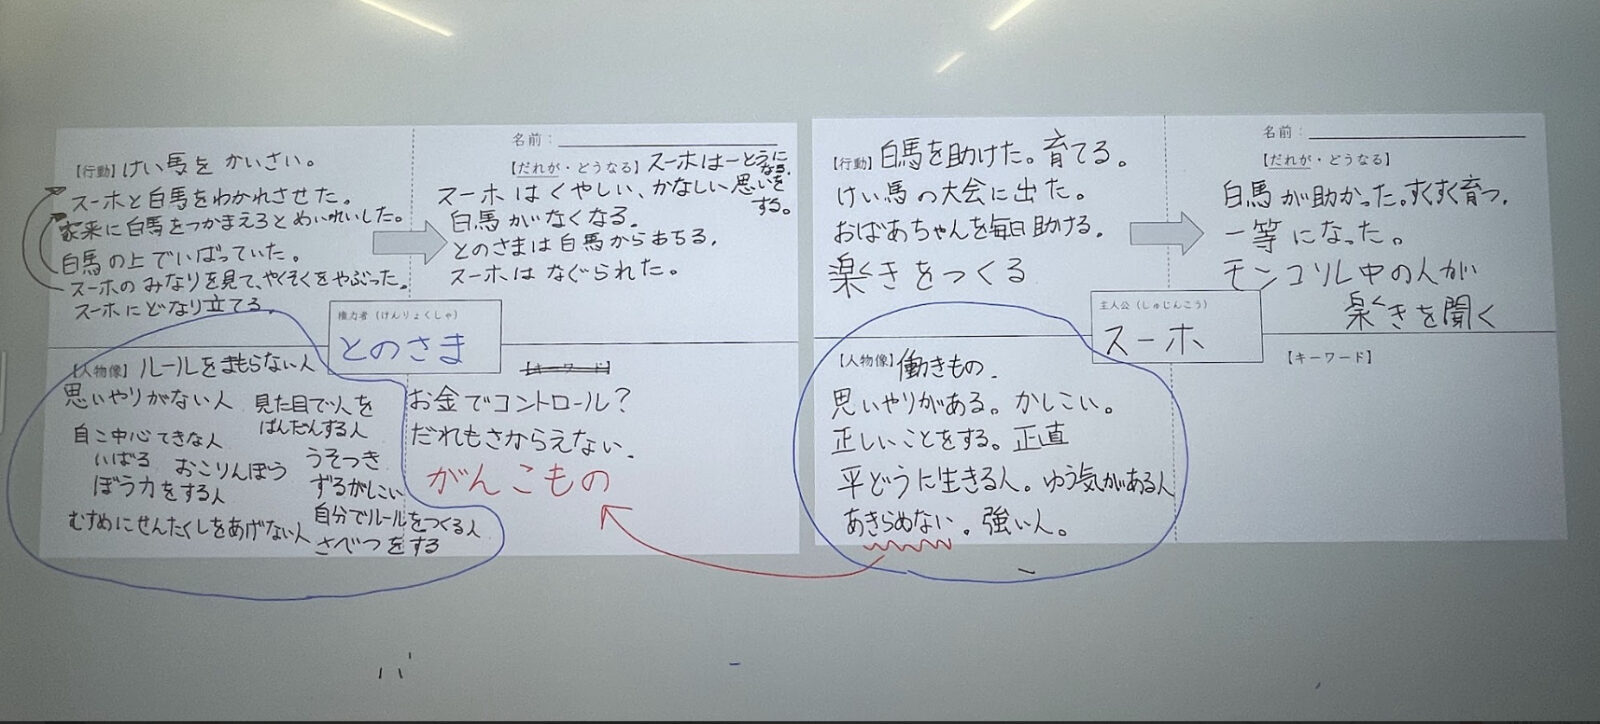 【行動】けい馬を かいさい。
スーホと白馬をわかれさせた。
家来に白馬をつかまえろとめいれいした。
白馬の上でいばっていた。
スーホのみなりを見て、やくそくをやぶった。
スーホにどなり立てる。
名前：
【だれが・どうなる】スーホは一とうになる。
スーホはくやしい、かなしい思いをする。
白馬がなくなる。
とのさまは白馬からおちる。
スーホはなぐられた。
権力者（けんりょくしゃ）
とのさま
【人物像】ルールをまもらない人
思いやりがない人
見た目で人を
はんだんする人
自こ中心てきな人
いばる
おこりんぼう
うそつき
ぼう力をする人
ずるがしこい
むすめにせんたくしをあげない人
自分でルールをつくる人
さべつをする
【キーワード】
お金でコントロール？
だれもさからえない。
がんこもの
【行動】白馬を助けた。育てる。
けい馬の大会に出た。
おばあちゃんを毎日助ける。
楽きをつくる
名前：
【だれが・どうなる】
白馬が助かった。すくすく育つ。
一等になった。
モンゴル中の人が
楽きを聞く
主人公（しゅじんこう）
スーホ
【人物像】働きもの。
思いやりがある。かしこい。
正しいことをする。正直
平どうに生きる人。ゆう気がある人
あきらめない。強い人。
【キーワード】